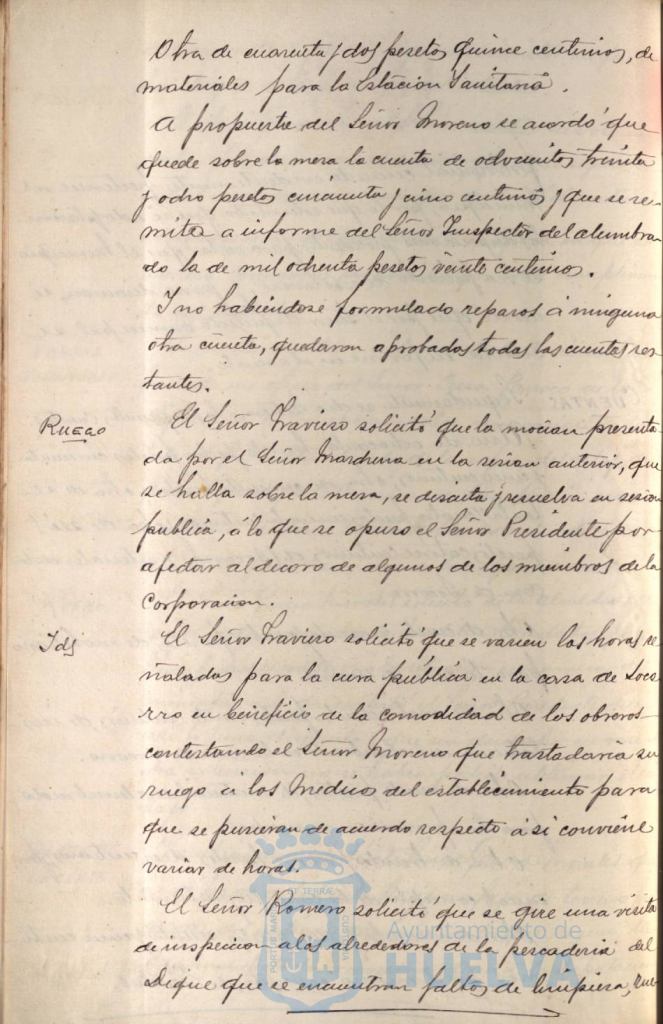 Otra de cuarenta y dos pesetas quince centimos, de
materiales para la Estacion Sanitaria.
A propuesta del Señor Moreno se acordó que
quede sobre la mesa la cuenta de odocientos treinta
y ocho pesetas cincuenta y cinco centimos y que se re-
mita a informe del Señor Inspector del alumbra
do la de mil ochenta pesetas veinte centimos.
Y no habiendose formulado reparos á ninguna
otra cuenta, quedaron aprobadas todas las cuentas res
tantes.
Ruego
El Señor Travieso solicitó que la mocion presenta
da por el Señor Marchena en la sesion anterior, que
se halla sobre la mesa, se discuta y resuelva en sesion
publica, á lo que se opuso el Señor Presidente por
afectar al decoro de algunos de los miembros de la
Corporacion.
Id
El Señor Travieso solicitó que se varien las horas se
ñaladas para la cura pública en la casa de Soco
rro en beneficio de la comodidad de los obreros
contestando el Señor Moreno que trasladaria su
ruego á los Medicos del establecimiento para
que se pusieran de acuerdo respecto á si conviene
variar de horas.
El Señor Romero solicitó que se gire una visita
de inspeccion a los alrededores de la pescaderia del
Dique que se encuentran faltos de limpieza,
Ayuntamiento de
HUELVA